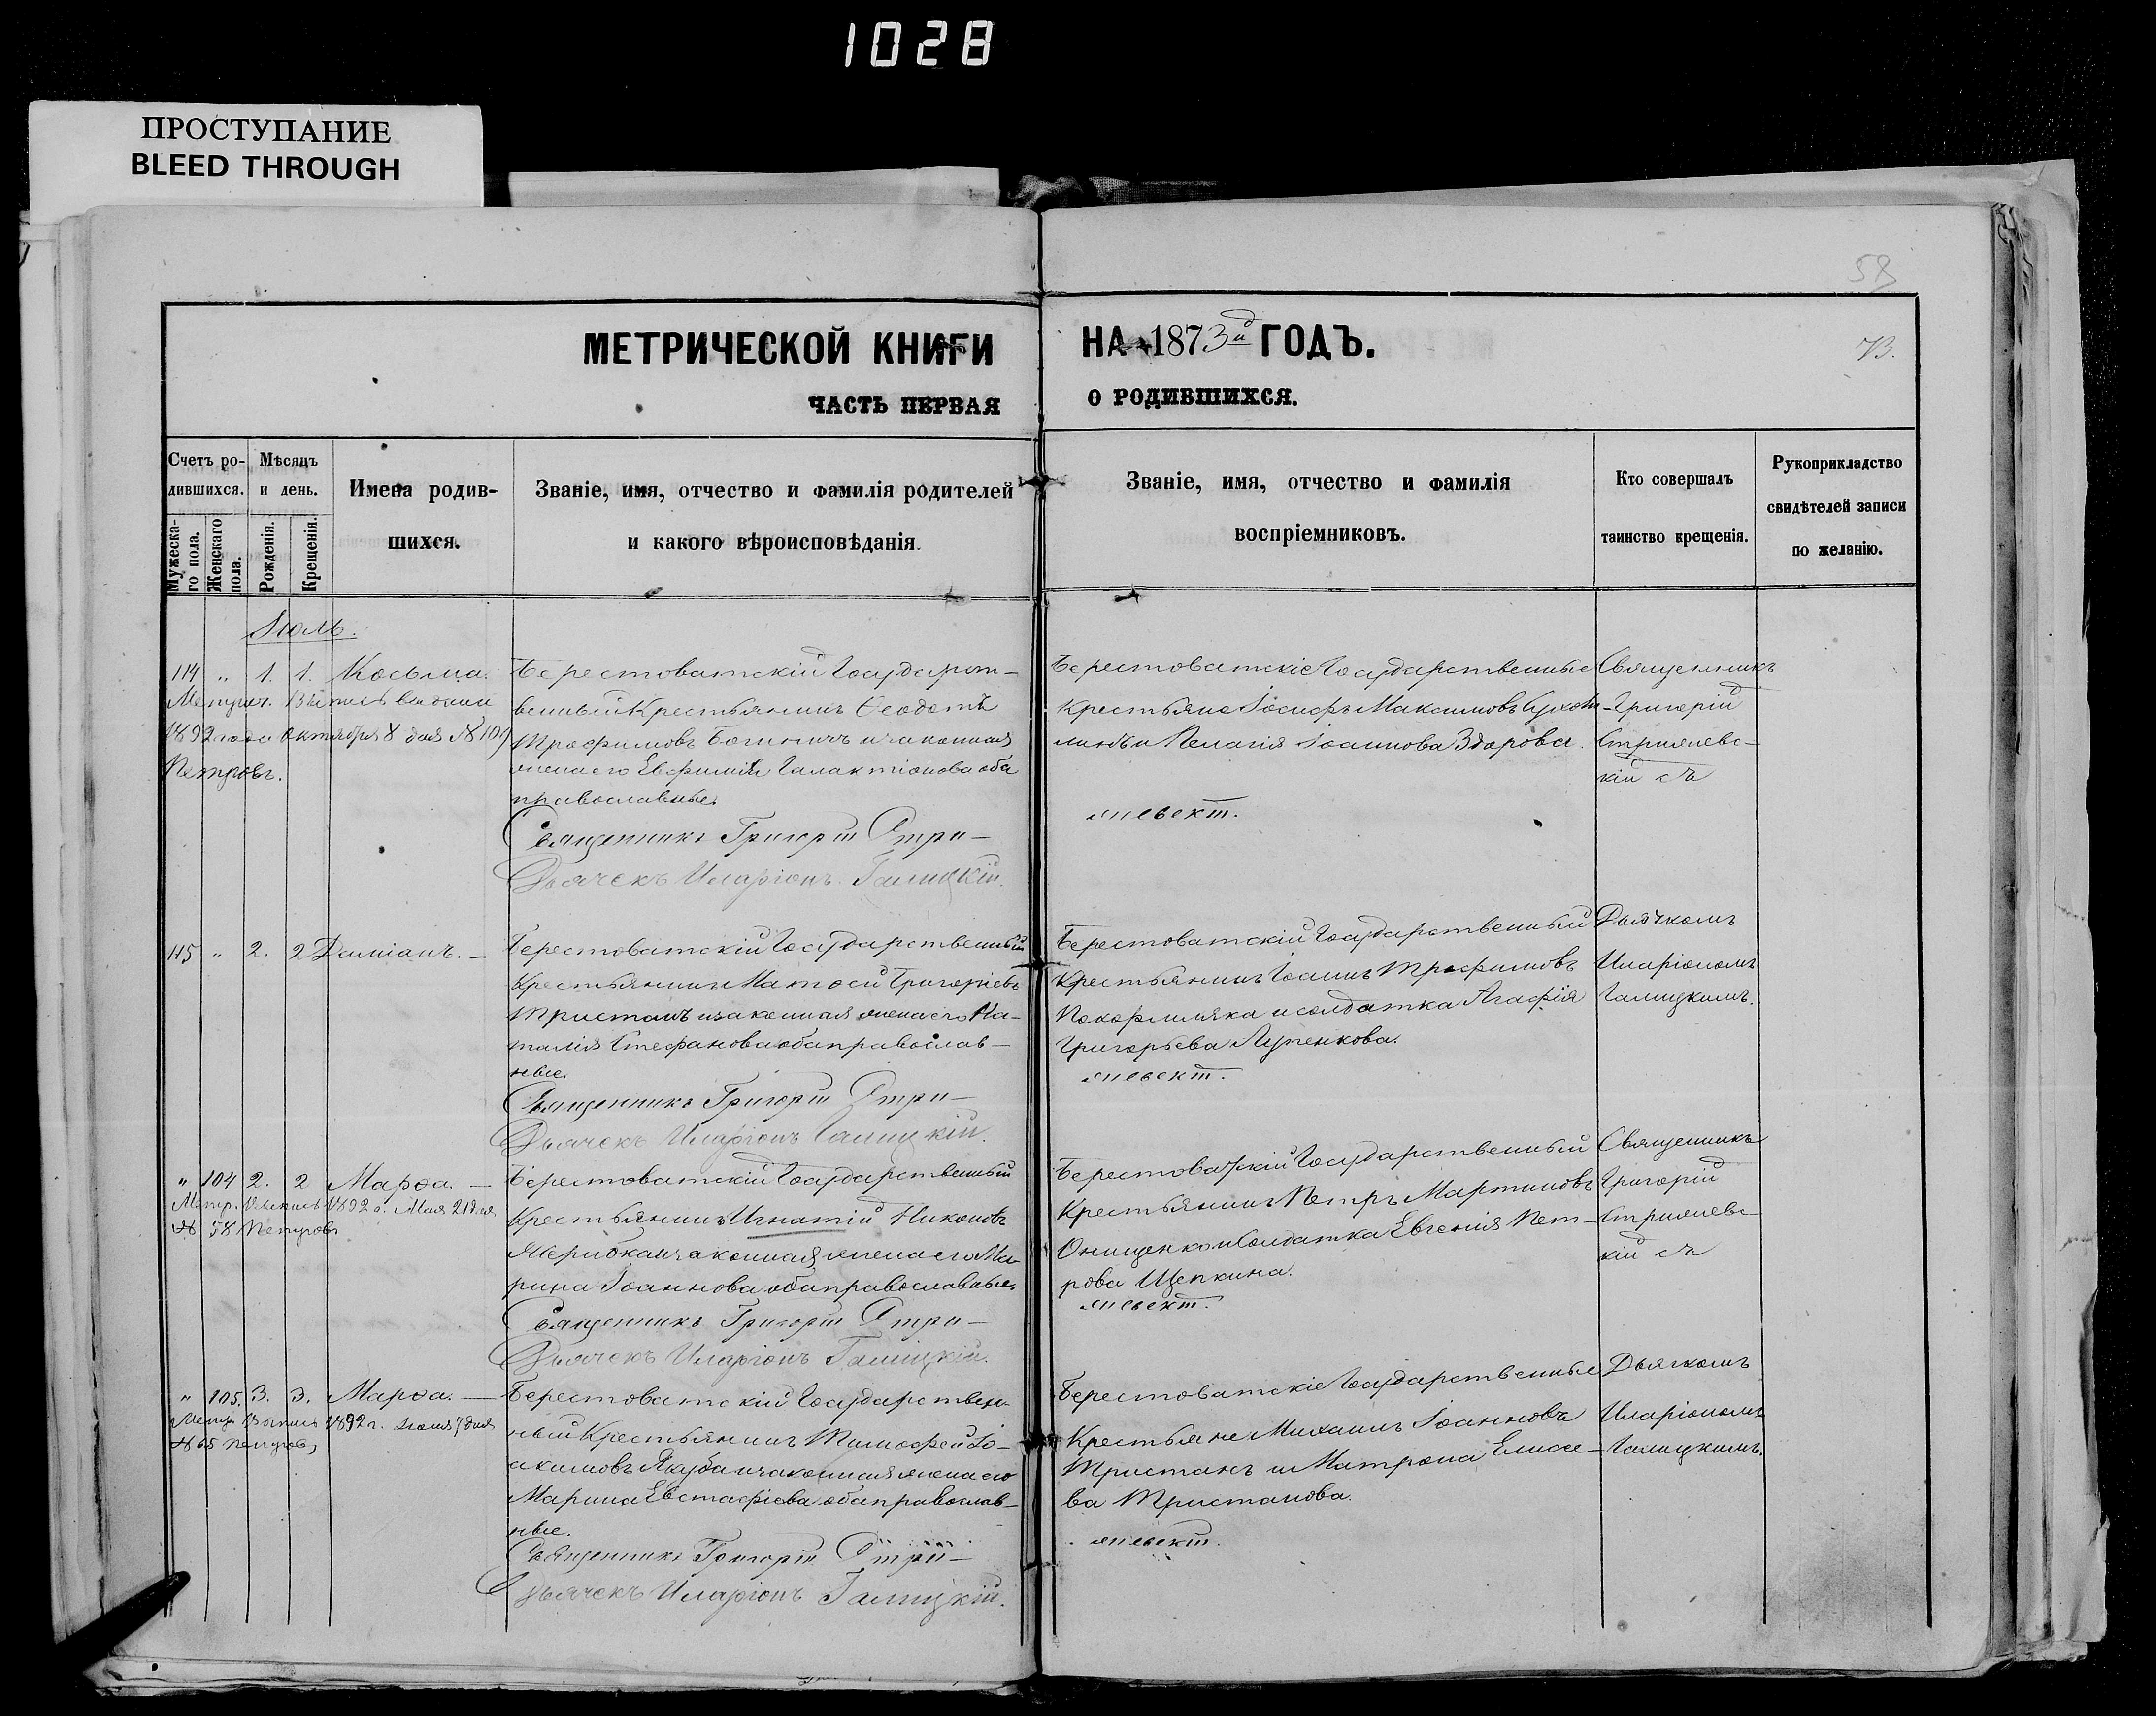 1028
ПРОСТУПАНИЕ
BLEED THROUGH
58
МЕТРИЧЕСКОЙ КНИГИ
НА 1873й ГОДЪ.
73.
ЧАСТЬ ПЕРВАЯ
О РОДИВШИХСЯ.
Счетъ ро-
дившихся.
Мужеска-
го пола.
Женскаго
пола.
Мѣсяцъ
и день.
Рожденія.
Крещенія.
Имена родив-
шихся.
Званіе, имя, отчество и фамилія родителей
и какого вѣроисповѣданія.
Званіе, имя, отчество и фамилія
воспріемниковъ.
Кто совершалъ
таинство крещенія.
Рукоприкладство
свидѣтелей записи
по желанію.
Іюль.
114 " 1. 1. Косьма.
1892 года октября 8 дня №
Петровъ.
Берестоватскій Государст-
венный Крестьянинъ Ѳеодотъ
Трофимовъ и законная
жена его Евфимія Галактіонова оба
православные.
Священникъ Григорій Стри-
Дьячекъ Иларіонъ Галицкій.
Берестоватскіе Государственные
Крестьяне Іосифъ Максимовъ
и Пелагія Іоаннова Здорова.
Священникъ
Григорій
Стрижевс-
кій съ
115 " 2. 2 Даміанъ. —
Берестоватскій Государственный
Крестьянинъ Матѳей Григоріевъ
Тристанъ и законная жена его На-
талія Стефанова оба православ-
ные.
Священникъ Григорій Стри-
Дьячекъ Иларіонъ Галицкій.
Берестоватскій Государственный
Крестьянинъ Іоаннъ Трофимовъ
и солдатка Агафія
Григорьева Лупенкова.
Дьячкомъ
Иларіономъ
Галицкимъ.
" 104 2. 2 Марѳа. —
Метр. 1892 г. Мая 21 дня
№ 58 Петровъ
Берестоватскій Государственный
Крестьянинъ Игнатій Никоновъ
и законная жена его Ма-
рина Іоаннова оба православные.
Священникъ Григорій Стри-
Дьячекъ Иларіонъ Галицкій.
Берестоватскій Государственный
Крестьянинъ Петръ Мартиновъ
Онищенко и Солдатка Евгенія Пет-
рова Щепкина.
Священникъ
Григорій
Стрижевс-
кій съ
" 105. 3. 3. Марѳа. —
Метр. Выпись 1892 г.
№ 65 Петровъ
Берестоватскій Государствен-
ный Крестьянинъ Тимофей Іо-
акимовъ Якуба и законная жена его
Марина Евстафіева оба православ-
ные.
Священникъ Григорій Стри-
Дьячекъ Иларіонъ Галицкій.
Берестоватскіе Государственные
Крестьяне Михаилъ Іоанновъ
Тристанъ и Матрона Елисее-
ва Тристанова.
Дьячкомъ
Иларіономъ
Галицкимъ.